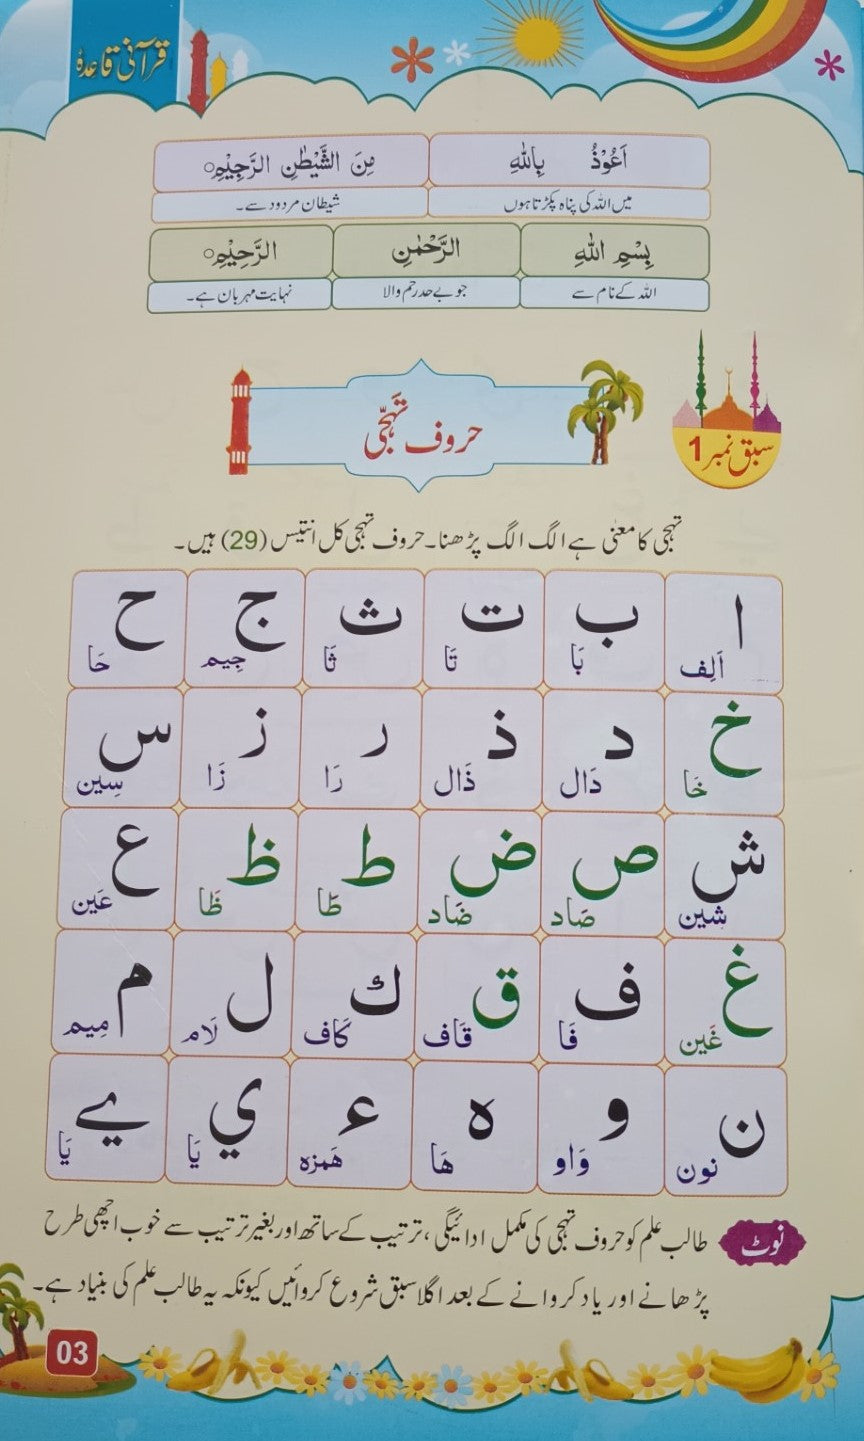 قرآنی قاعدہ
اَعُوْذُ بِاللّٰهِ مِنَ الشَّيْطٰنِ الرَّجِيْمِ○
میں اللہ کی پناہ پکڑتا ہوں شیطان مردود سے۔
بِسْمِ اللّٰهِ الرَّحْمٰنِ الرَّحِيْمِ○
اللہ کے نام سے جو بے حد رحم والا نہایت مہربان ہے۔
سبق نمبر 1
حروف تہجّی
تہجی کا معنٰی ہے الگ الگ پڑھنا۔ حروف تہجی کل انتیس (29) ہیں۔
ا ب ت ث ج ح
اَلِف بَا تَا ثَا جِيم حَا
خ د ذ ر ز س
خَا دَال ذَال رَا زَا سِين
ش ص ض ط ظ ع
شين صَاد ضَاد طَا ظَا عَين
غ ف ق ك ل م
غَين فَا قَاف كَاف لَام مِيم
ن و ه ء ي ے
نون وَاو هَا هَمزه يَا يَا
نوٹ طالب علم کو حروف تہجی کی مکمل ادائیگی، ترتیب کے ساتھ اور بغیر ترتیب سے خوب اچھی طرح
پڑھانے اور یاد کروانے کے بعد اگلا سبق شروع کروائیں کیونکہ یہ طالب علم کی بنیاد ہے۔
03